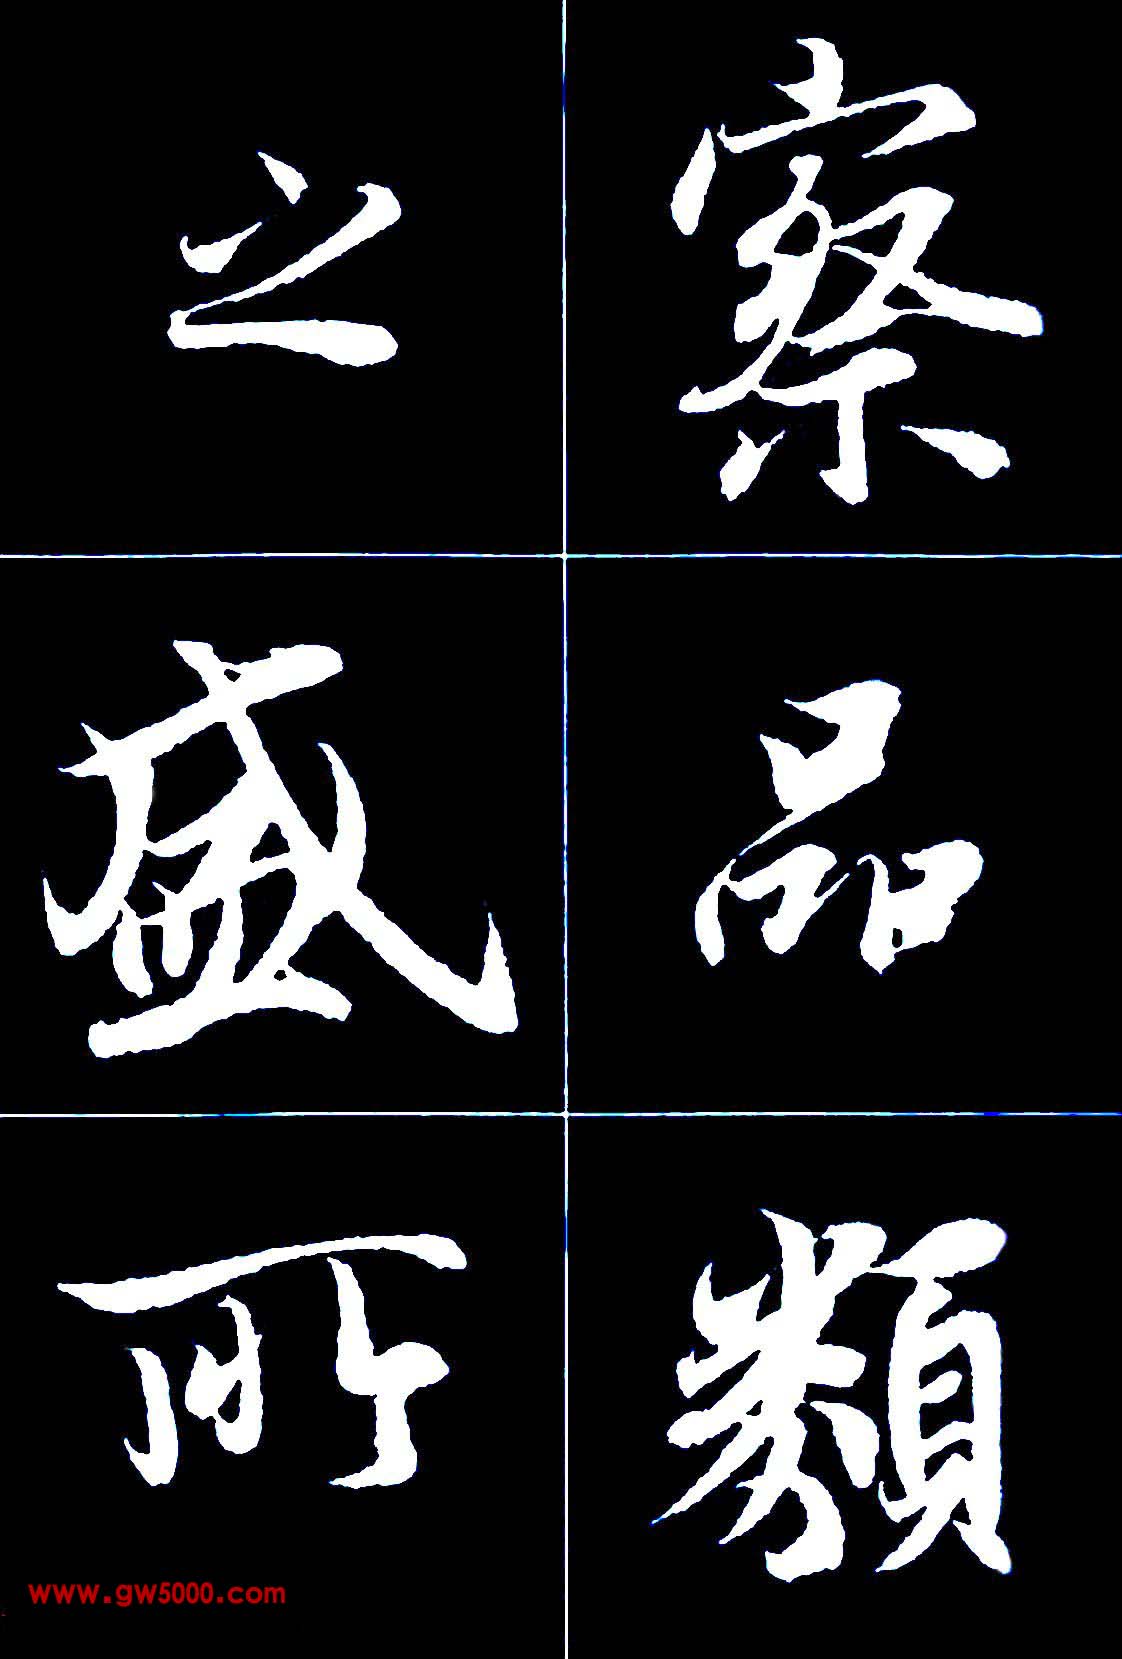 察品類
之盛所
www.gw5000.com